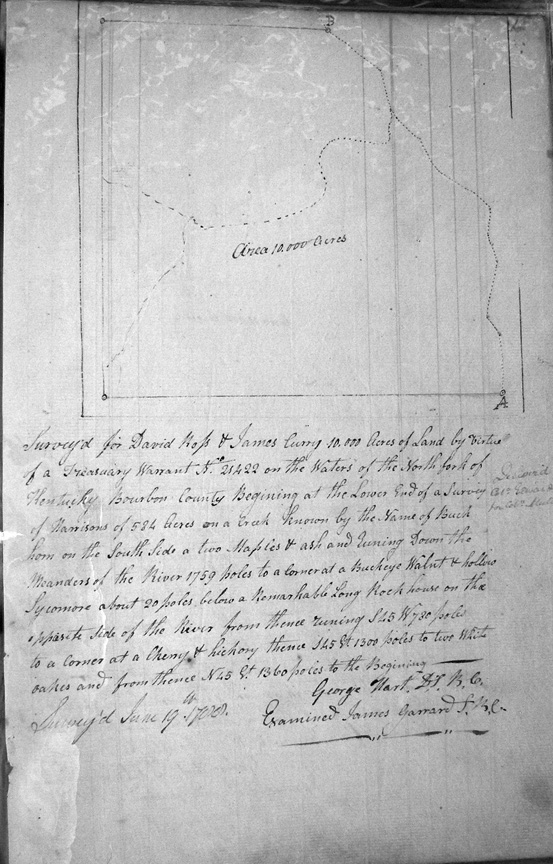 B
Area 10.000 Acres
A
Survey'd for David Ross & James Curry 10.000 Acres of Land by Virtue
of a Treasuary Warrant No. 21422 on the Waters of the North fork of
Kentucky Bourbon County Begining at the Lower End of a Survey
of Harrisons of 524 Acres on a Creek Known by the Name of Buck
horn on the South Side a two Maples & ash and Runing Down the
Meanders of the River 1759 poles to a corner at a Buckeye Walnut & hollow
Sycomore about 20 poles below a Remarkable Long Rock house on the
opposite Side of the River from thence runing S 45 W 720 poles
to a Corner at a Chery & hickory thence S 45 Et 1300 poles to two White
oakes and from thence N 45 Et 1360 poles to the Begining
George Hart. D.S. B.C.
Survey'd June 19th
Examined James Garrard S.B.C.